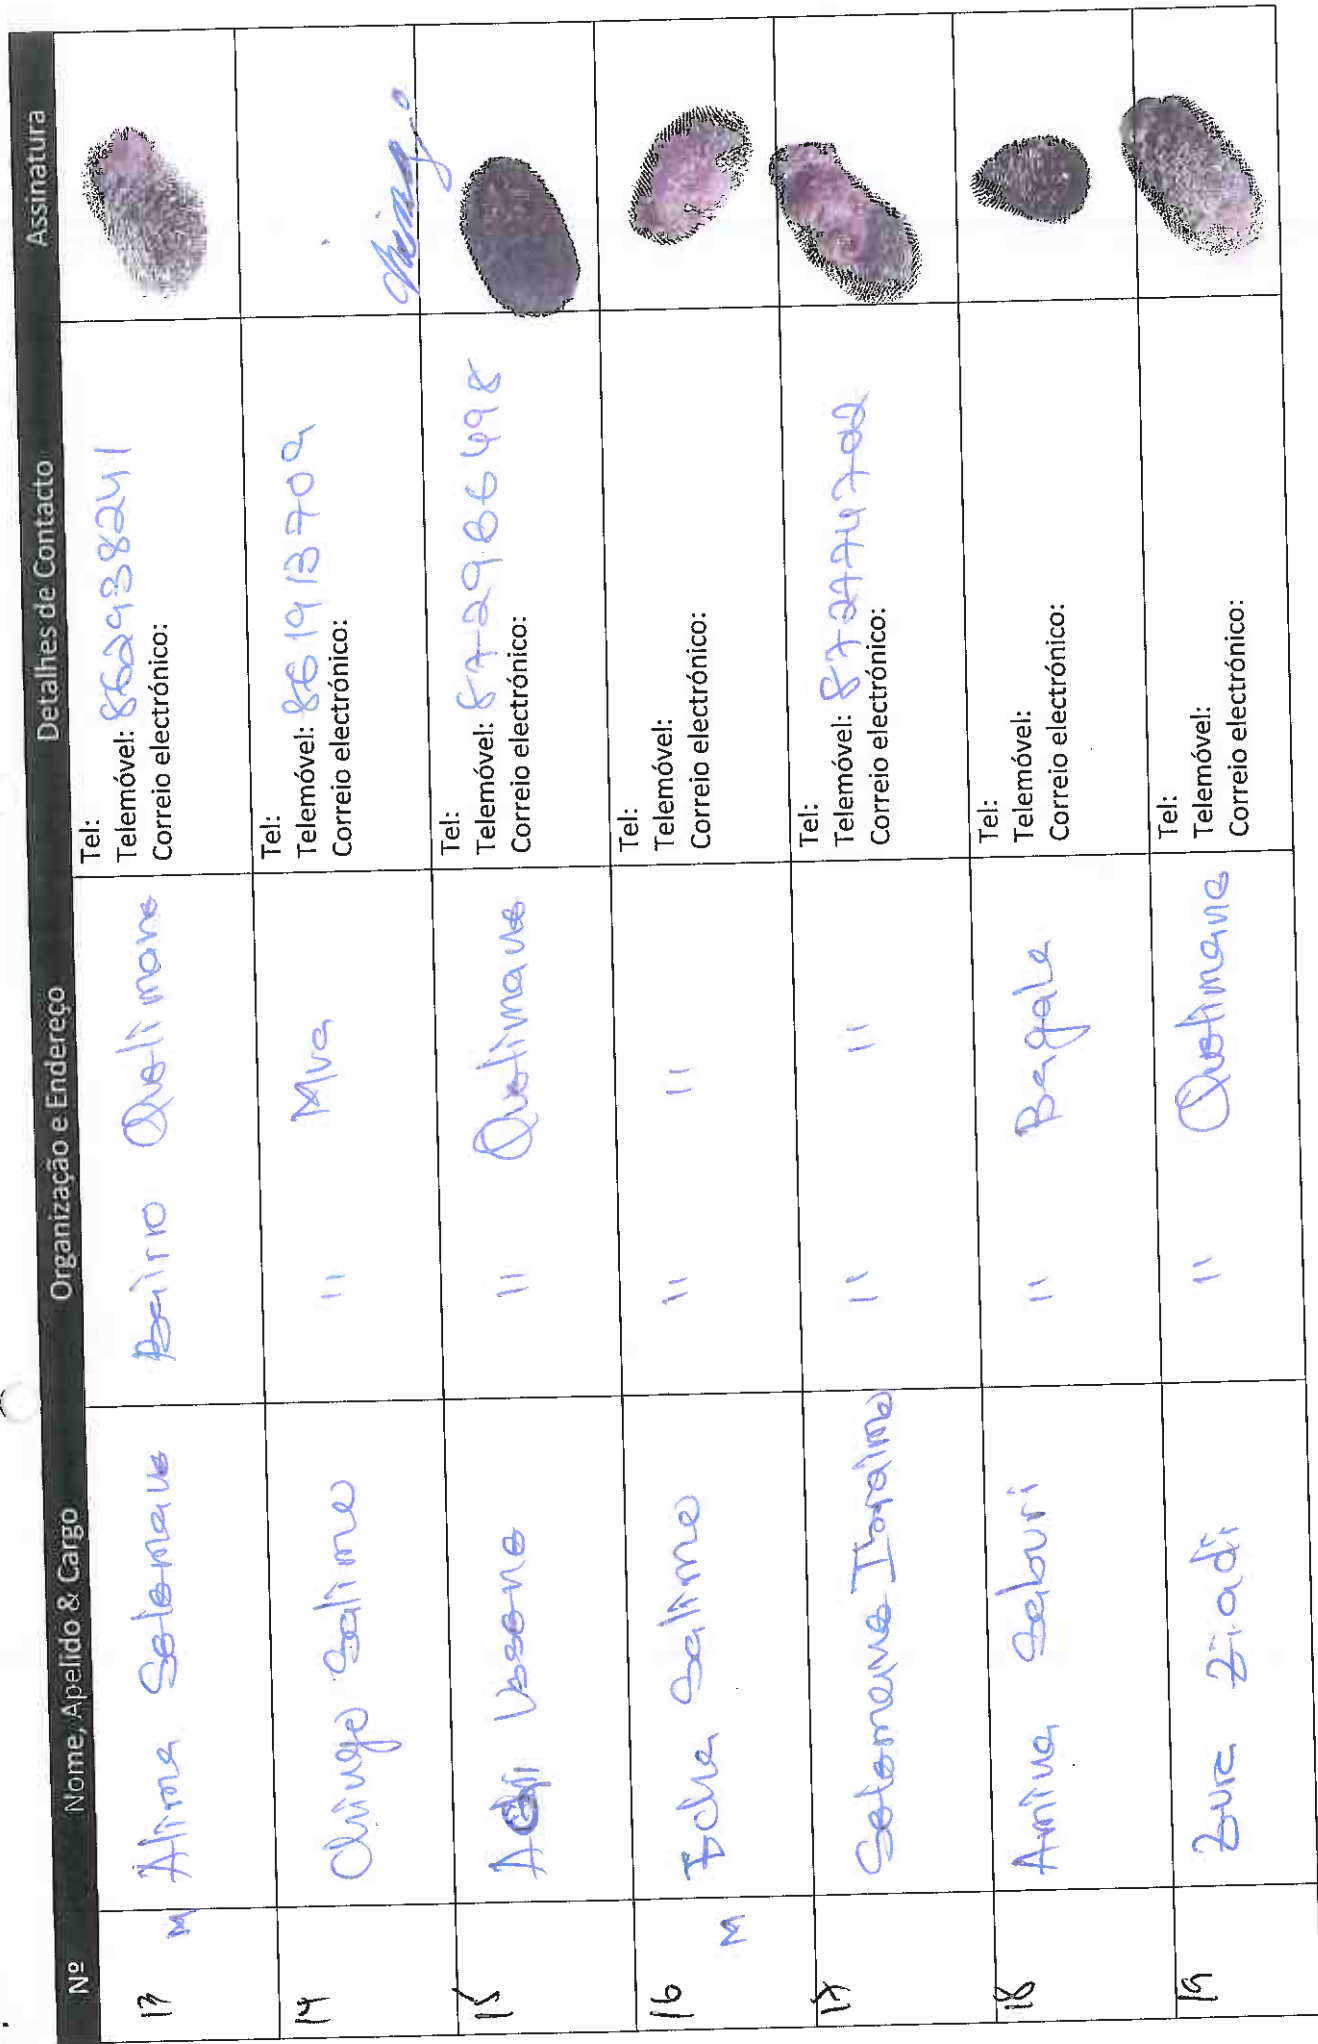 Nº Nome, Apelido & Cargo Organização e Endereço Detalhes de Contacto Assinatura
13 M Alima Solemane Bairro Quelimane
Tel:
Telemóvel: 862938241
Correio electrónico:
14 Chingo Salimo " Mua
Tel:
Telemóvel: 861913709
Correio electrónico:
Chingo
15 Usseno " Quelimane
Tel:
Telemóvel: 872986498
Correio electrónico:
16 M Salimo " "
Tel:
Telemóvel:
Correio electrónico:
17 Solemane Ibraimo " "
Tel:
Telemóvel:
Correio electrónico:
18 Amina Saburi " Bagala
Tel:
Telemóvel:
Correio electrónico:
19 Zura Ziadi " Quelimane
Tel:
Telemóvel:
Correio electrónico: